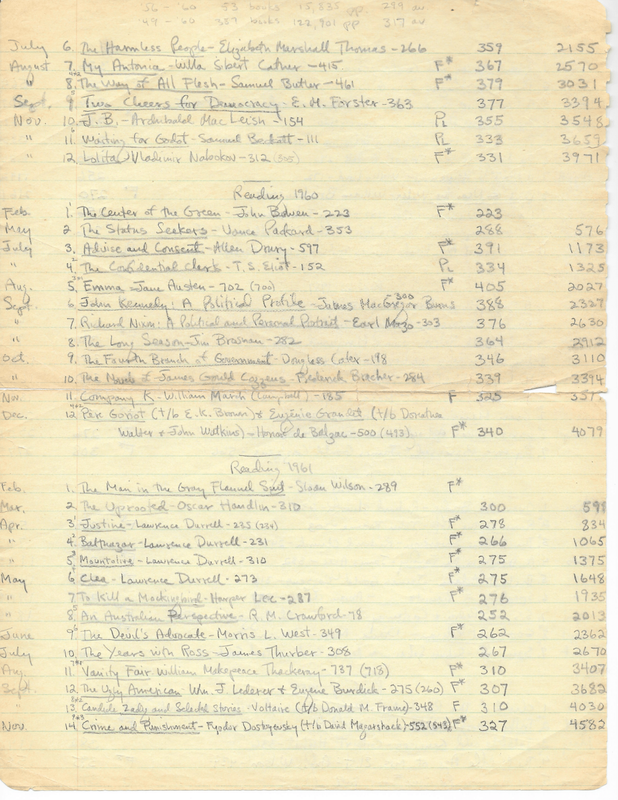 56 - '60 53 books 15,835 pp. 299 av
49 - '60 387 books 122,901 pp 317 av
July 6. The Harmless People - Elizabeth Marshall Thomas - 266 359 2155
August 7. My Antonia - Willa Sibert Cather - 415 F* 367 2570
" 8. The Way of All Flesh - Samuel Butler - 461 F* 379 3031
Sept. 9. Two Cheers for Democracy - E. M. Forster - 363 377 3394
Nov. 10. J.B. - Archibald MacLeish - 154 PL 355 3548
" 11. Waiting for Godot - Samuel Beckett - 111 PL 333 3659
" 12. Lolita - Vladimir Nabokov - 312 F* 331 3971
Reading 1960
Feb. 1. The Center of the Green - John Bowen - 223 F* 223
May 2. The Status Seekers - Vance Packard - 353 288 576
July 3. Advise and Consent - Allen Drury - 597 F* 391 1173
" 4. The Confidential Clerk - T.S. Eliot - 152 PL 334 1325
Aug. 5. Emma - Jane Austen - 702 (700) F* 405 2027
Sept. 6. John Kennedy: A Political Profile - James MacGregor Burns 300 388 2327
" 7. Richard Nixon: A Political and Personal Portrait - Earl Mazo - 303 376 2630
" 8. The Long Season - Jim Brosnan - 282 364 2912
Oct. 9. The Fourth Branch of Government - Douglass Cater - 198 346 3110
" 10. The Novels of James Gould Cozzens - Frederick Bracher - 284 339 3394
Nov. 11. Company K - William March (Campbell) - 185 F 325 357
Dec. 12. Père Goriot (t/b E.K. Brown) & Eugénie Grandet (t/b Dorothea
Walter & John Watkins) - Honoré de Balzac - 500 (493) F* 340 4079
Reading 1961
Feb. 1. The Man in the Gray Flannel Suit - Sloan Wilson - 289 F*
Mar. 2. The Uprooted - Oscar Handlin - 310 300 599
Apr. 3. Justine - Lawrence Durrell - 235 (234) F* 278 834
" 4. Balthazar - Lawrence Durrell - 231 F* 266 1065
" 5. Mountolive - Lawrence Durrell - 310 F* 275 1375
May 6. Clea - Lawrence Durrell - 273 F* 275 1648
" 7. To Kill a Mockingbird - Harper Lee - 287 F* 276 1935
" 8. An Australian Perspective - R. M. Crawford - 78 252 2013
June 9. The Devil's Advocate - Morris L. West - 349 F* 262 2362
July 10. The Years with Ross - James Thurber - 308 267 2670
Aug. 11. Vanity Fair - William Makepeace Thackeray - 737 (713) F* 310 3407
Sept. 12. The Ugly American - Wm. J. Lederer & Eugene Burdick - 275 (260) F* 307 3682
" 13. Candide, Zadig and Selected Stories - Voltaire (t/b Donald M. Frame) - 348 F 310 4030
Nov. 14. Crime and Punishment - Fyodor Dostoyevsky (t/b David Magarshack) - 552 (543) F* 327 4582